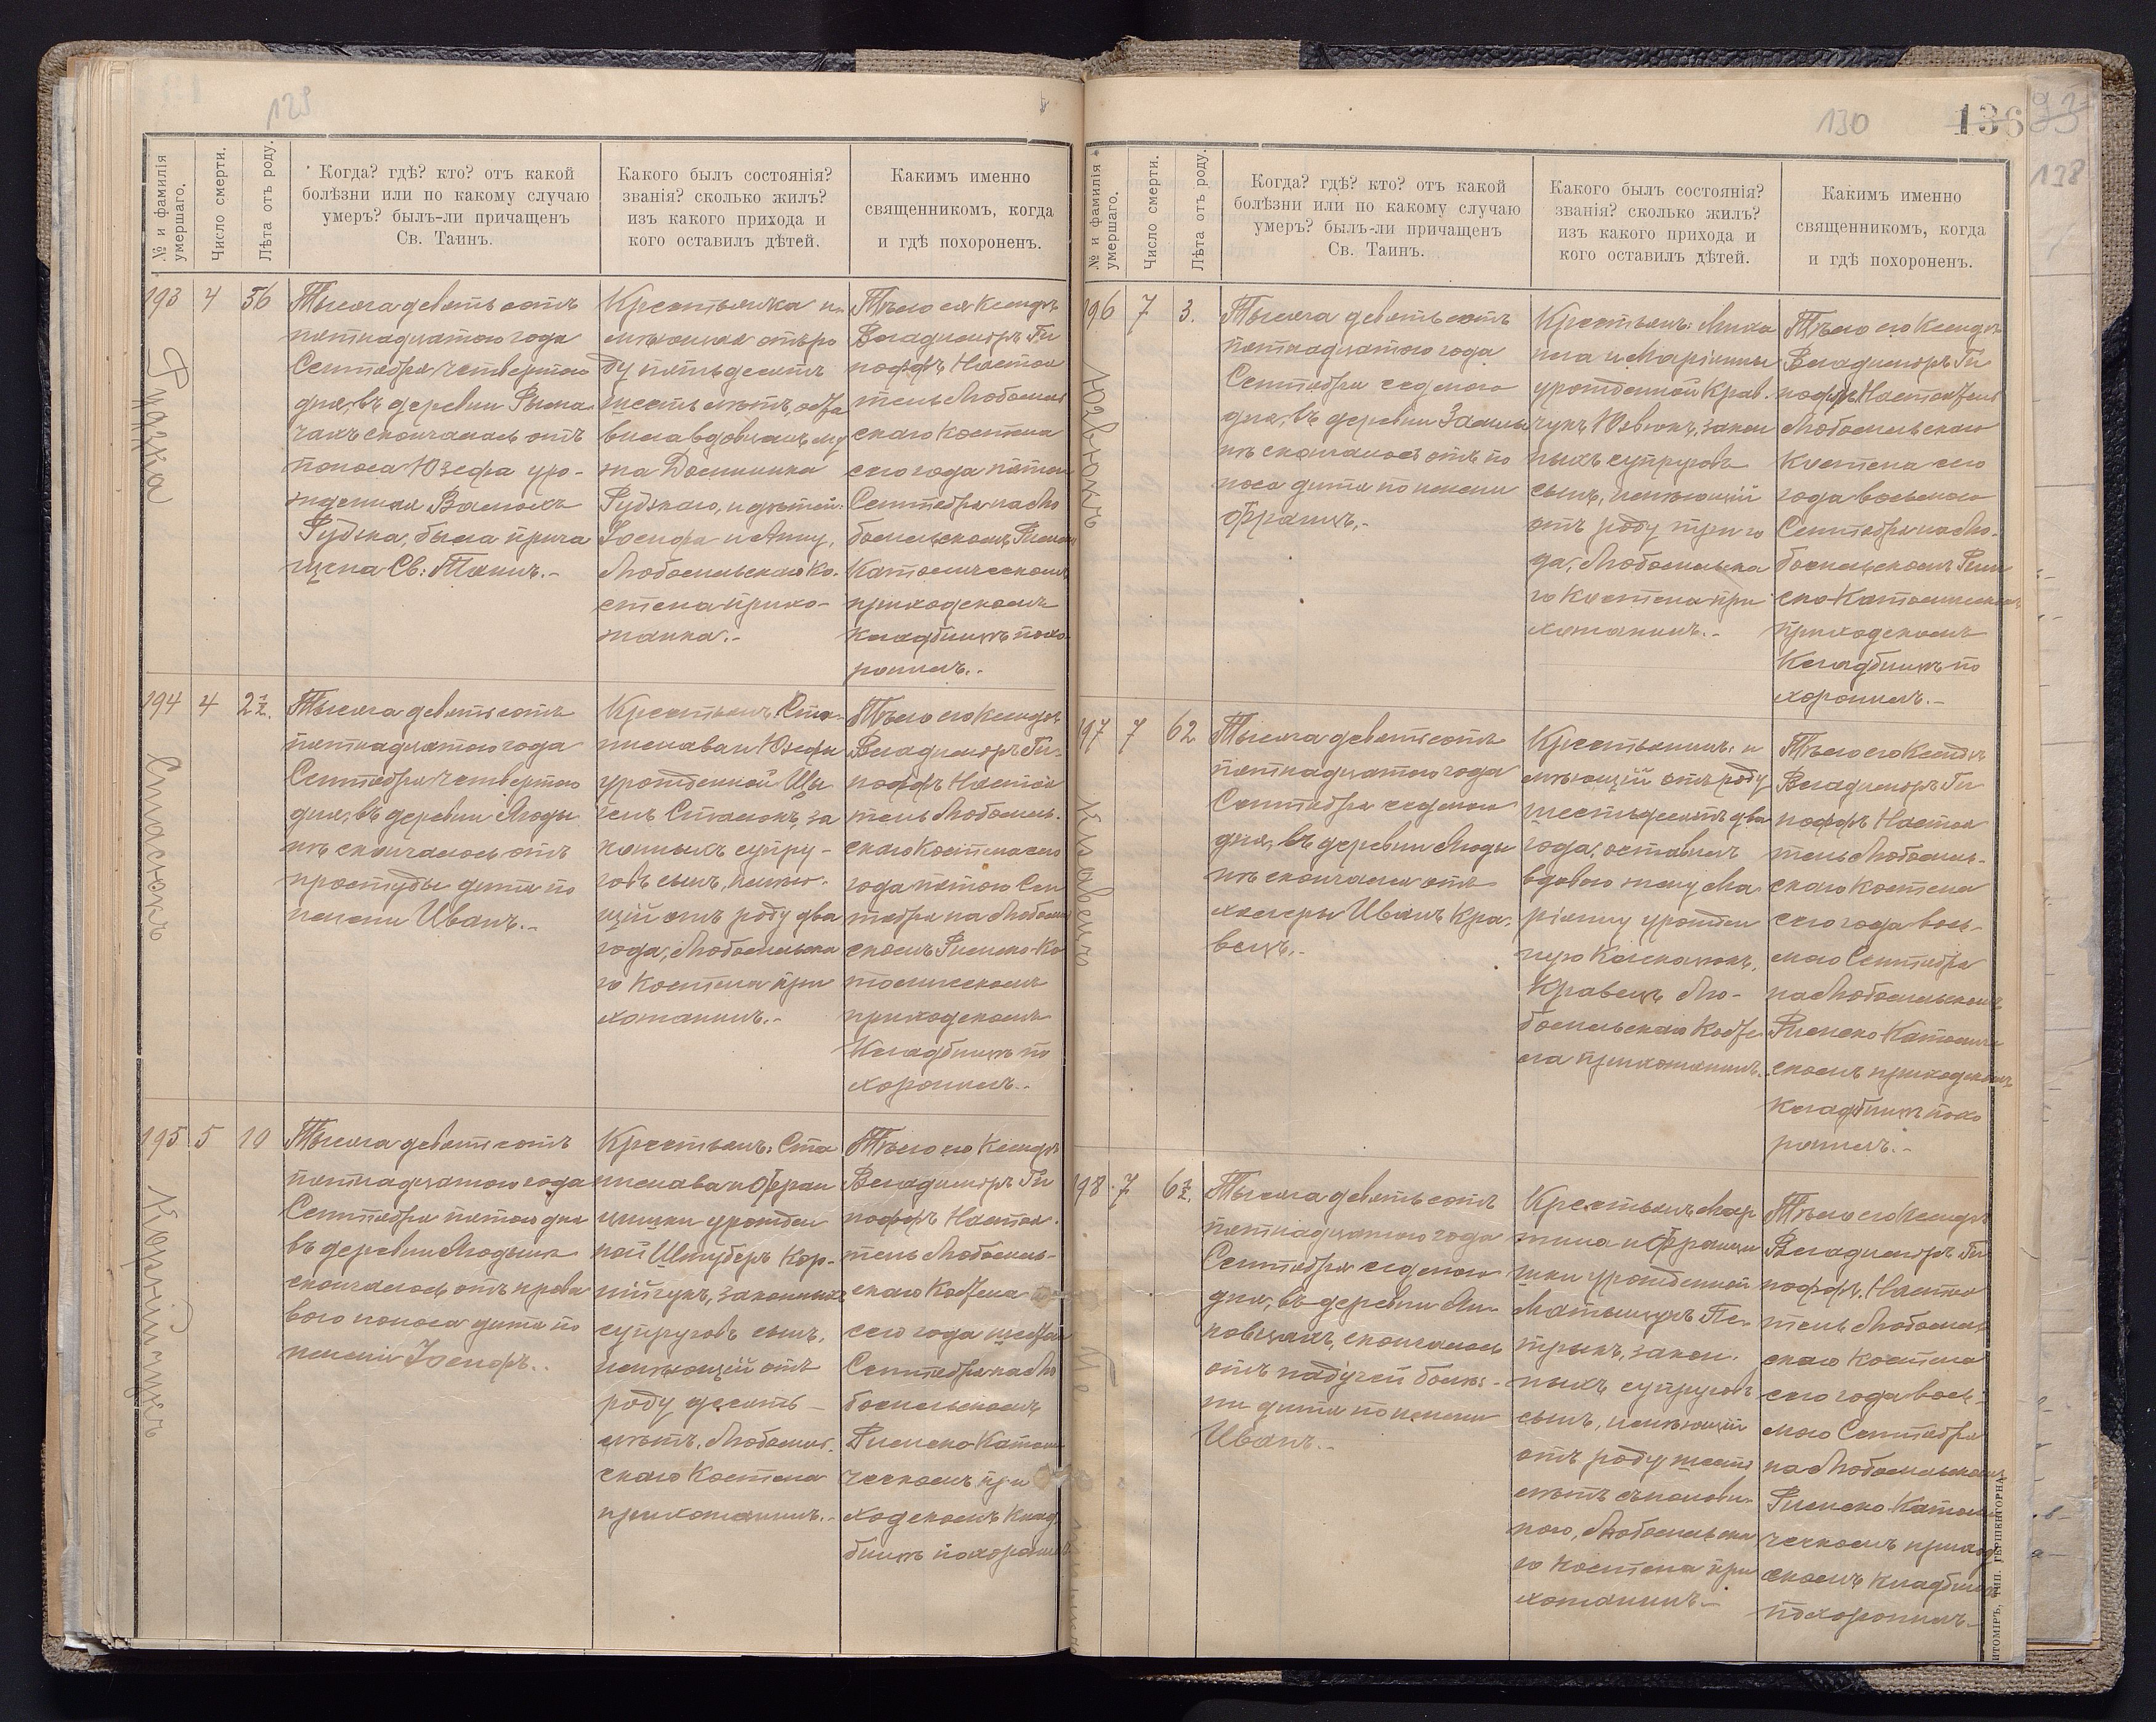 129
№ и фамилія умершаго.
Число смерти.
Лѣта отъ роду.
Когда? гдѣ? кто? отъ какой
болѣзни или по какому случаю
умеръ? былъ-ли причащенъ
Св. Таинъ.
Какого былъ состоянія?
званія? сколько жилъ?
изъ какого прихода и
кого оставилъ дѣтей.
Какимъ именно
священникомъ, когда
и гдѣ похороненъ.
193
Рудзка
4
56
Тысяча девятьсотъ
пятнадцатого года
Сентября четвертого
дня, въ деревни Рыма-
чахъ скончалась отъ
поноса Юзефа уро-
жденная
Рудзка, была прича
щена Св: Таинъ.-
Крестьянка и
мѣющая отъ ро
ду пятьдесятъ
шесть лѣтъ, оста
вила вдовцемъ му
жа Доминика
Рудзкаго, и дѣтей:
Іосифа и Анну,
Любомльскаго Ко-
стела прихо-
жанка.-
Тѣло ея Ксендзъ
Владиміръ Ги
поффъ Настоя
тель Любомль
скаго Костела
сего года пятого
Сентября на Лю
бомльскомъ Римско
Католическомъ
приходскомъ
кладбищѣ похо-
ронилъ.-
194
Стасюкъ
4
2½.
Тысяча девятьсотъ
пятнадцатого года
Сентября четвертого
дня, въ деревни Ягоды
нѣ скончалось отъ
простуды дитя по
имени Иванъ.-
Крестьянъ: Ста-
нислава и Юзефы
урожденной
Стасюкъ, за
конныхъ супру-
говъ сынъ, имѣю-
щій отъ роду два
года, Любомльска
го Костела при
хожанинъ.-
Тѣло его Ксендзъ
Владиміръ Ги-
поффъ Настоя
тель Любомль-
скаго Костела сего
года пятого Сен
тября на Любомль
скомъ Римско-Ка
толическомъ
приходскомъ
Кладбищѣ по
хоронилъ.-
195.
Корнійчукъ
5
10
Тысяча девятьсотъ
пятнадцатого года
Сентября пятого дня
въ деревни Ягодынѣ
скончалось отъ крова
вого поноса дитя по
имени Іосифъ.-
Крестьянъ: Ста
нислава и Фран
цишки урожден
ной Штуберъ Кор-
нійчукъ, законныхъ
супруговъ сынъ,
имѣющій отъ
роду десять
лѣтъ, Любомль-
скаго Костела
прихожанинъ.-
Тѣло его Ксендзъ
Владиміръ Ги
поффъ Настоя-
тель Любомль-
скаго Костела
сего года шестого
Сентября на Лю
бомльскомъ
Римско-Католи
ческомъ при
ходскомъ Клад
бищѣ похоронилъ
130
136
93
138
№ и фамилія умершаго.
Число смерти.
Лѣта отъ роду.
Когда? гдѣ? кто? отъ какой
болѣзни или по какому случаю
умеръ? былъ-ли причащенъ
Св. Таинъ.
Какого былъ состоянія?
званія? сколько жилъ?
изъ какого прихода и
кого оставилъ дѣтей.
Какимъ именно
священникомъ, когда
и гдѣ похороненъ.
196
Юзвюкъ
7
3.
Тысяча девятьсотъ
пятнадцатого года
Сентября седмого
дня, въ деревни
нѣ скончалось отъ по
носа дитя по имени
Францъ.-
Крестьянъ: Миха
ила и Маріянны
урожденной Крав-
чукъ Юзвюкъ, закон
ныхъ супруговъ
сынъ, имѣющій
отъ роду три го
да, Любомльска
го Костела при
хожанинъ.-
Тѣло его Ксендзъ
Владиміръ Ги
поффъ Настоятель
Любомльскаго
Костела сего
года восьмого
Сентября на Лю-
бомльскомъ Рим
ско-Католическомъ
приходскомъ
Кладбищѣ по
хоронилъ.-
197
Кравецъ
7
62
Тысяча девятьсотъ
пятнадцатого года
Сентября седмого
дня, въ деревни Ягоды
нѣ скончался отъ
холеры Иванъ Кра-
вецъ.-
Крестьянинъ: и
мѣющій отъ роду
шестьдесятъ два
года, оставилъ
вдовою жену Ма
ріянну урожден
ную
Кравецъ Лю-
бомльскаго Косте
ла прихожанинъ.
Тѣло его Ксендзъ
Владиміръ Ги
поффъ Настоя
тель Любомль-
скаго Костела
сего года вось-
мого Сентября
на Любомльскомъ
Римско-Католиче
скомъ приходскомъ
Кладбищѣ похо
ронилъ.-
198.
7
6½.
Тысяча девятьсотъ
пятнадцатого года
Сентября седмого
дня, въ деревни
скончалось
отъ падучей болѣз-
ни дитя по имени
Иванъ.-
Крестьянъ Мар
тина и Францы
шки урожденной
Матыщукъ Пе-
трыкъ, закон-
ныхъ супруговъ
сынъ, имѣющій
отъ роду шесть
лѣтъ съ полови-
ною, Любомльска
го Костела при
хожанинъ.-
Тѣло его Ксендзъ
Владиміръ Ги
поффъ, Настоя
тель Любомль
скаго Костела
сего года вось-
мого Сентября
на Любомльскомъ
Римско-Католи
ческомъ приход
скомъ Кладбищѣ
похоронилъ.-
ИТОМІРЪ, ТИП. ГЕРШЕНГОРНА.